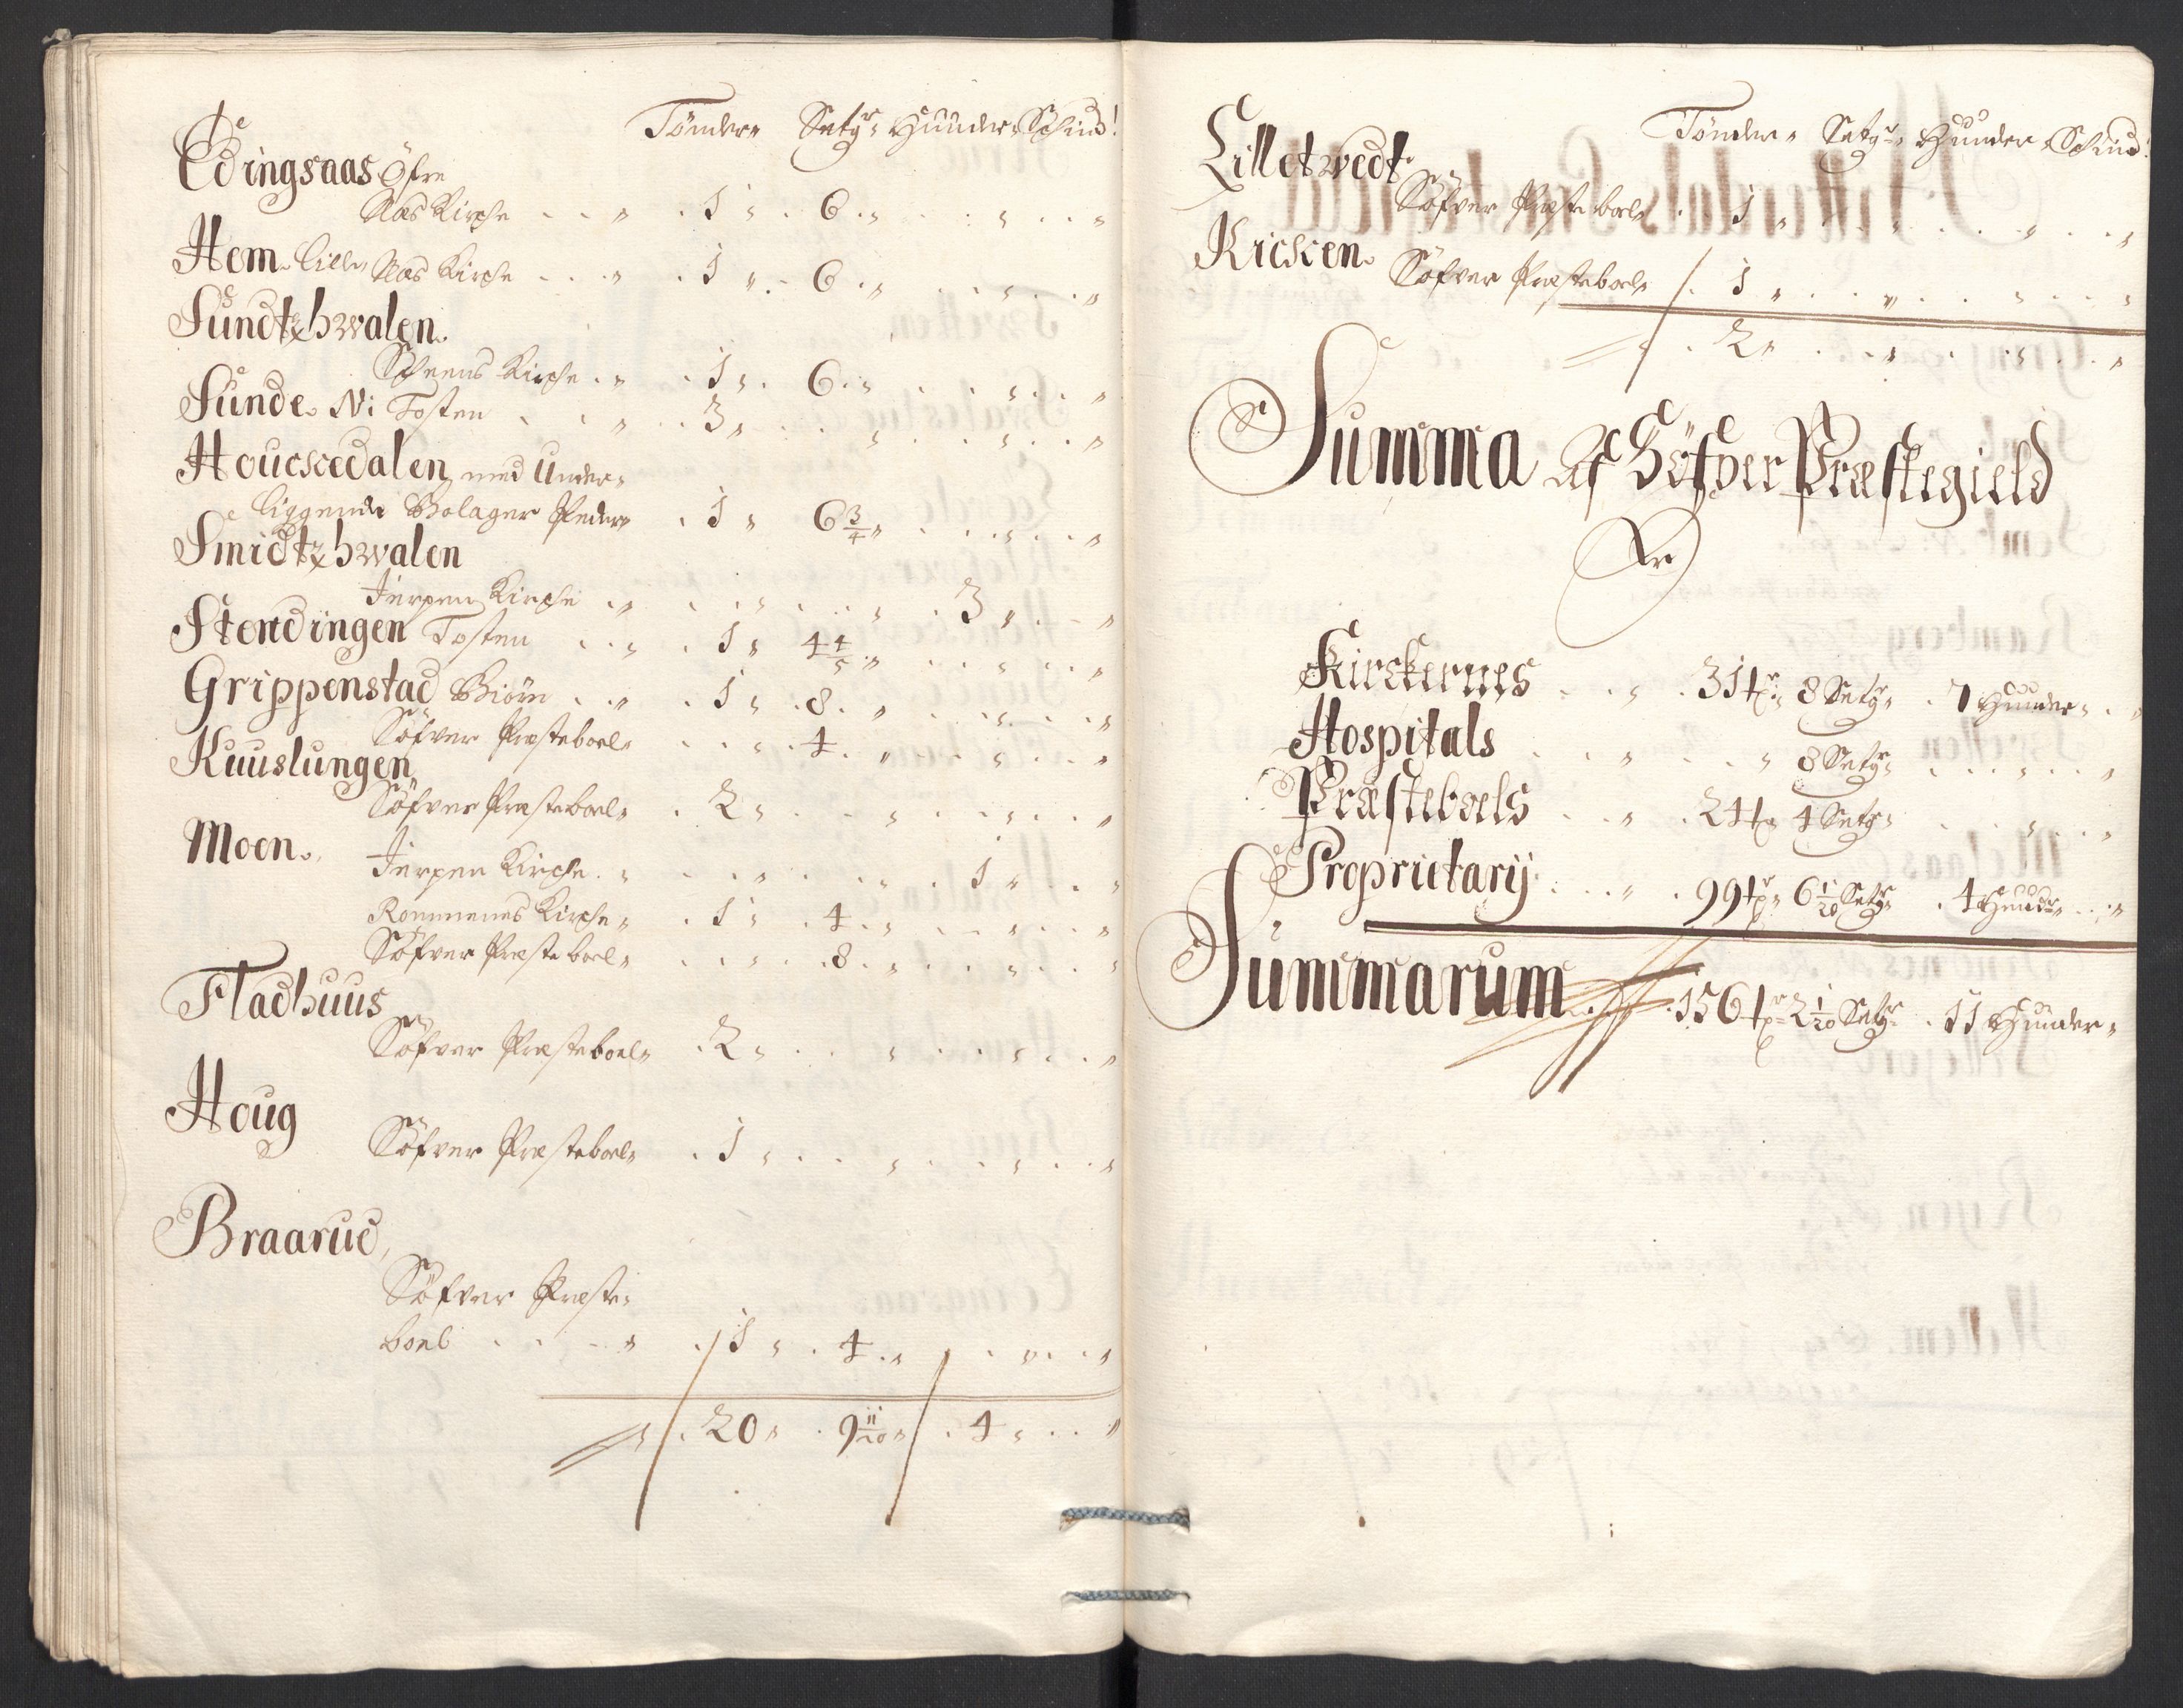 Tönder„ Setgr„ Hunder„ Schind!
Edingsaas Öfre
Næs Kirche . . „ . 1 „ . 6 . „ . . „ . . „
Hem. Lille Næs Kirche . . . „ . 1 „ . 6 . „ . . „ . . „
Sundtzhwalen.
Scheens Kirche . „ . 1 „ . 6 . „ . . „ . . „
Sunde. Ni Tosten . . „ . . 3 „ . . „ . . „ . . „
Houchedalen med Under„
liggende Bolager Peder„ . 1 „ 6 3/4 „ . . „ . . „
Smidtzhwalen
Jerpen Kirche . „ . . „ . . „ . 3 „ . . „
Stendingen Tosten . . „ . 1 „ 4 4/5 „ . . „ . . „
Grippenstad Biörn . . „ . 1 „ . 8 . „ . . „ . . „
Söfver Præsteboel„ . . „ . 4 . „ . . „ . . „
Kuuslungen
Söfver Præsteboel„ . 2 „ . . „ . . „ . . „
Moen.
Jerpen Kirche . „ . . „ . . „ . 1 „ . . „
Rommenes Kirche„ . 1 „ . 4 . „ . . „ . . „
Söfver Præsteboel„ . . „ . 8 . „ . . „ . . „
Fladhuus
Söfver Præsteboel„ . 2 „ . . „ . . „ . . „
Houg
Söfver Præsteboel„ . 1 „ . . „ . . „ . . „
Braarud
Söfver Præste„
boel . . . „ . 1 „ . 4 . „ . . „ . . „
„ . 20 „ . 9 11/20 „ . 4 „ . . „
Tönder„ Setgr„ Hunder„ Schind!
Lilletwedt
Söfver Præsteboel„ . 1 „ . . „ . . „ . . „
Kricken.
Söfver Præsteboel„ . 1 „ . . „ . . „ . . „
„ . 2 „ . . „ . . „ . . „
Summa Af Söfver Præstegield
Er
Kirckernes . . „ . 31 tr„ 8 Setgr„ . 7 Hunder„ . „
Hospitals . . „ . . „ 8 Setgr„ . . „ . . „
Præsteboels . . „ . 24 tr„ 4 Setgr„ . . „ . . „
Proprietarij . . „ . 99 tr„ 6 1/20 Setgr„ . 4 Hundr„ . . „
Summarum . 156 tr„ 2 1/20 Setgr„ . 11 Hunder„